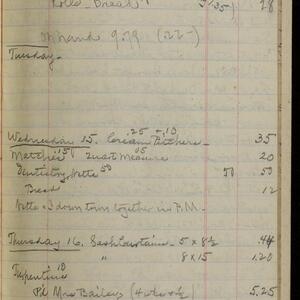 Rolls - Bread 5/35) 28
on hand 9.79 (22-)
Tuesday-
.25 + .10
Wednesday 15. Cream Pitchers- 35
Matches 15 2 quart measure 05 20
Dentistry, Netta 50 50 .50
Bread 12
Netta & I down town together in P.M.
Thursday 16. Sash Curtains- 5 x 8½ .44
" 8 x 15 1.20
Turpentine 10
Pd Mrs Bailey (4 wks 5.25